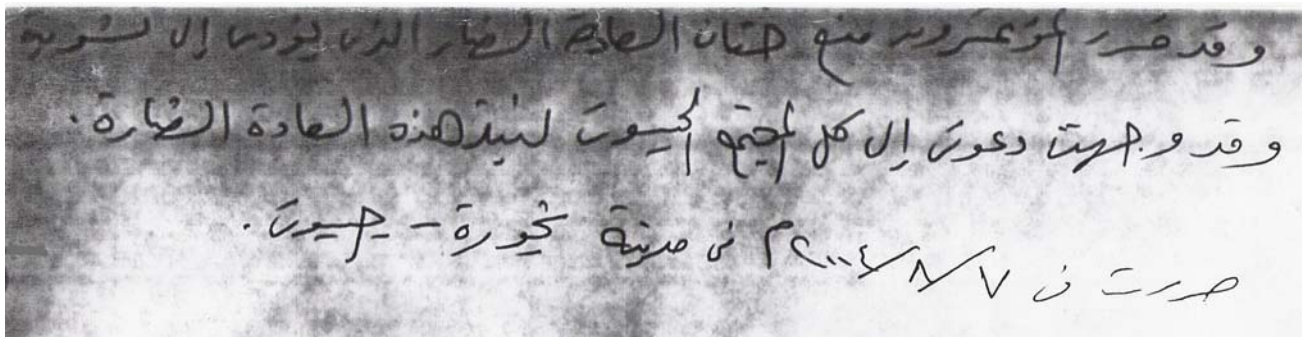 وقد قرر المؤتمرون منع ختان العادة الضار الذي يؤدي إلى تشويه
وقد وجهت دعوى إلى كل المجتمع الجيبوتي لنبذ هذه العادة الضارة.
صدرت في ٢٠٠٤/٨/٧م في مدينة تجورة - جيبوتي.